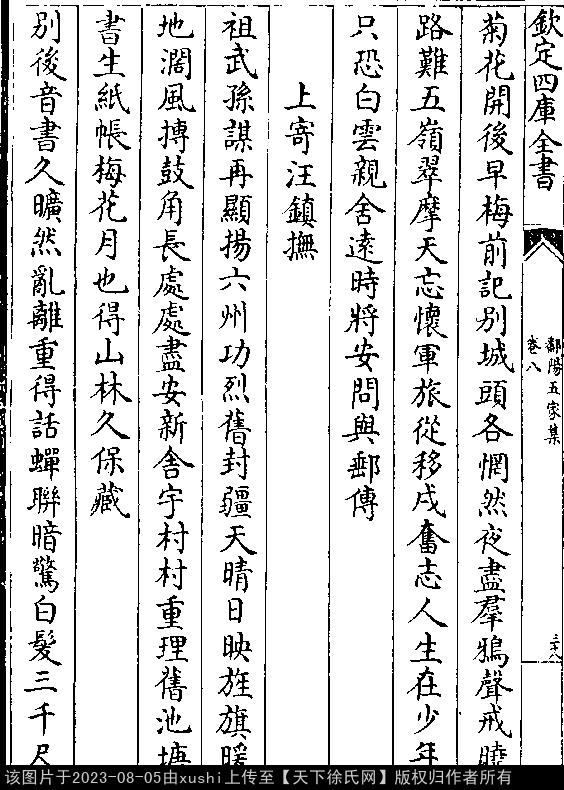 欽定四庫全書
鄱陽五家集
卷八
三十八
菊花開後早梅前記别城頭各惘然夜盡羣鴉聲戒曉
路難五嶺翠摩天忘懷軍旅從移戍奮志人生在少年
只恐白雲親舍逺時將安問與郵傳
上寄汪鎮撫
祖武孫謀再顯揚六州功烈舊封疆天晴日映旌旗暖
地濶風摶鼓角長處處盡安新舍宇村村重理舊池塘
書生紙帳梅花月也得山林久保藏
别後音書久曠然亂離重得話蟬聯暗驚白髪三千尺
该图片于2023-08-05由xushi上传至【天下徐氏网】版权归作者所有